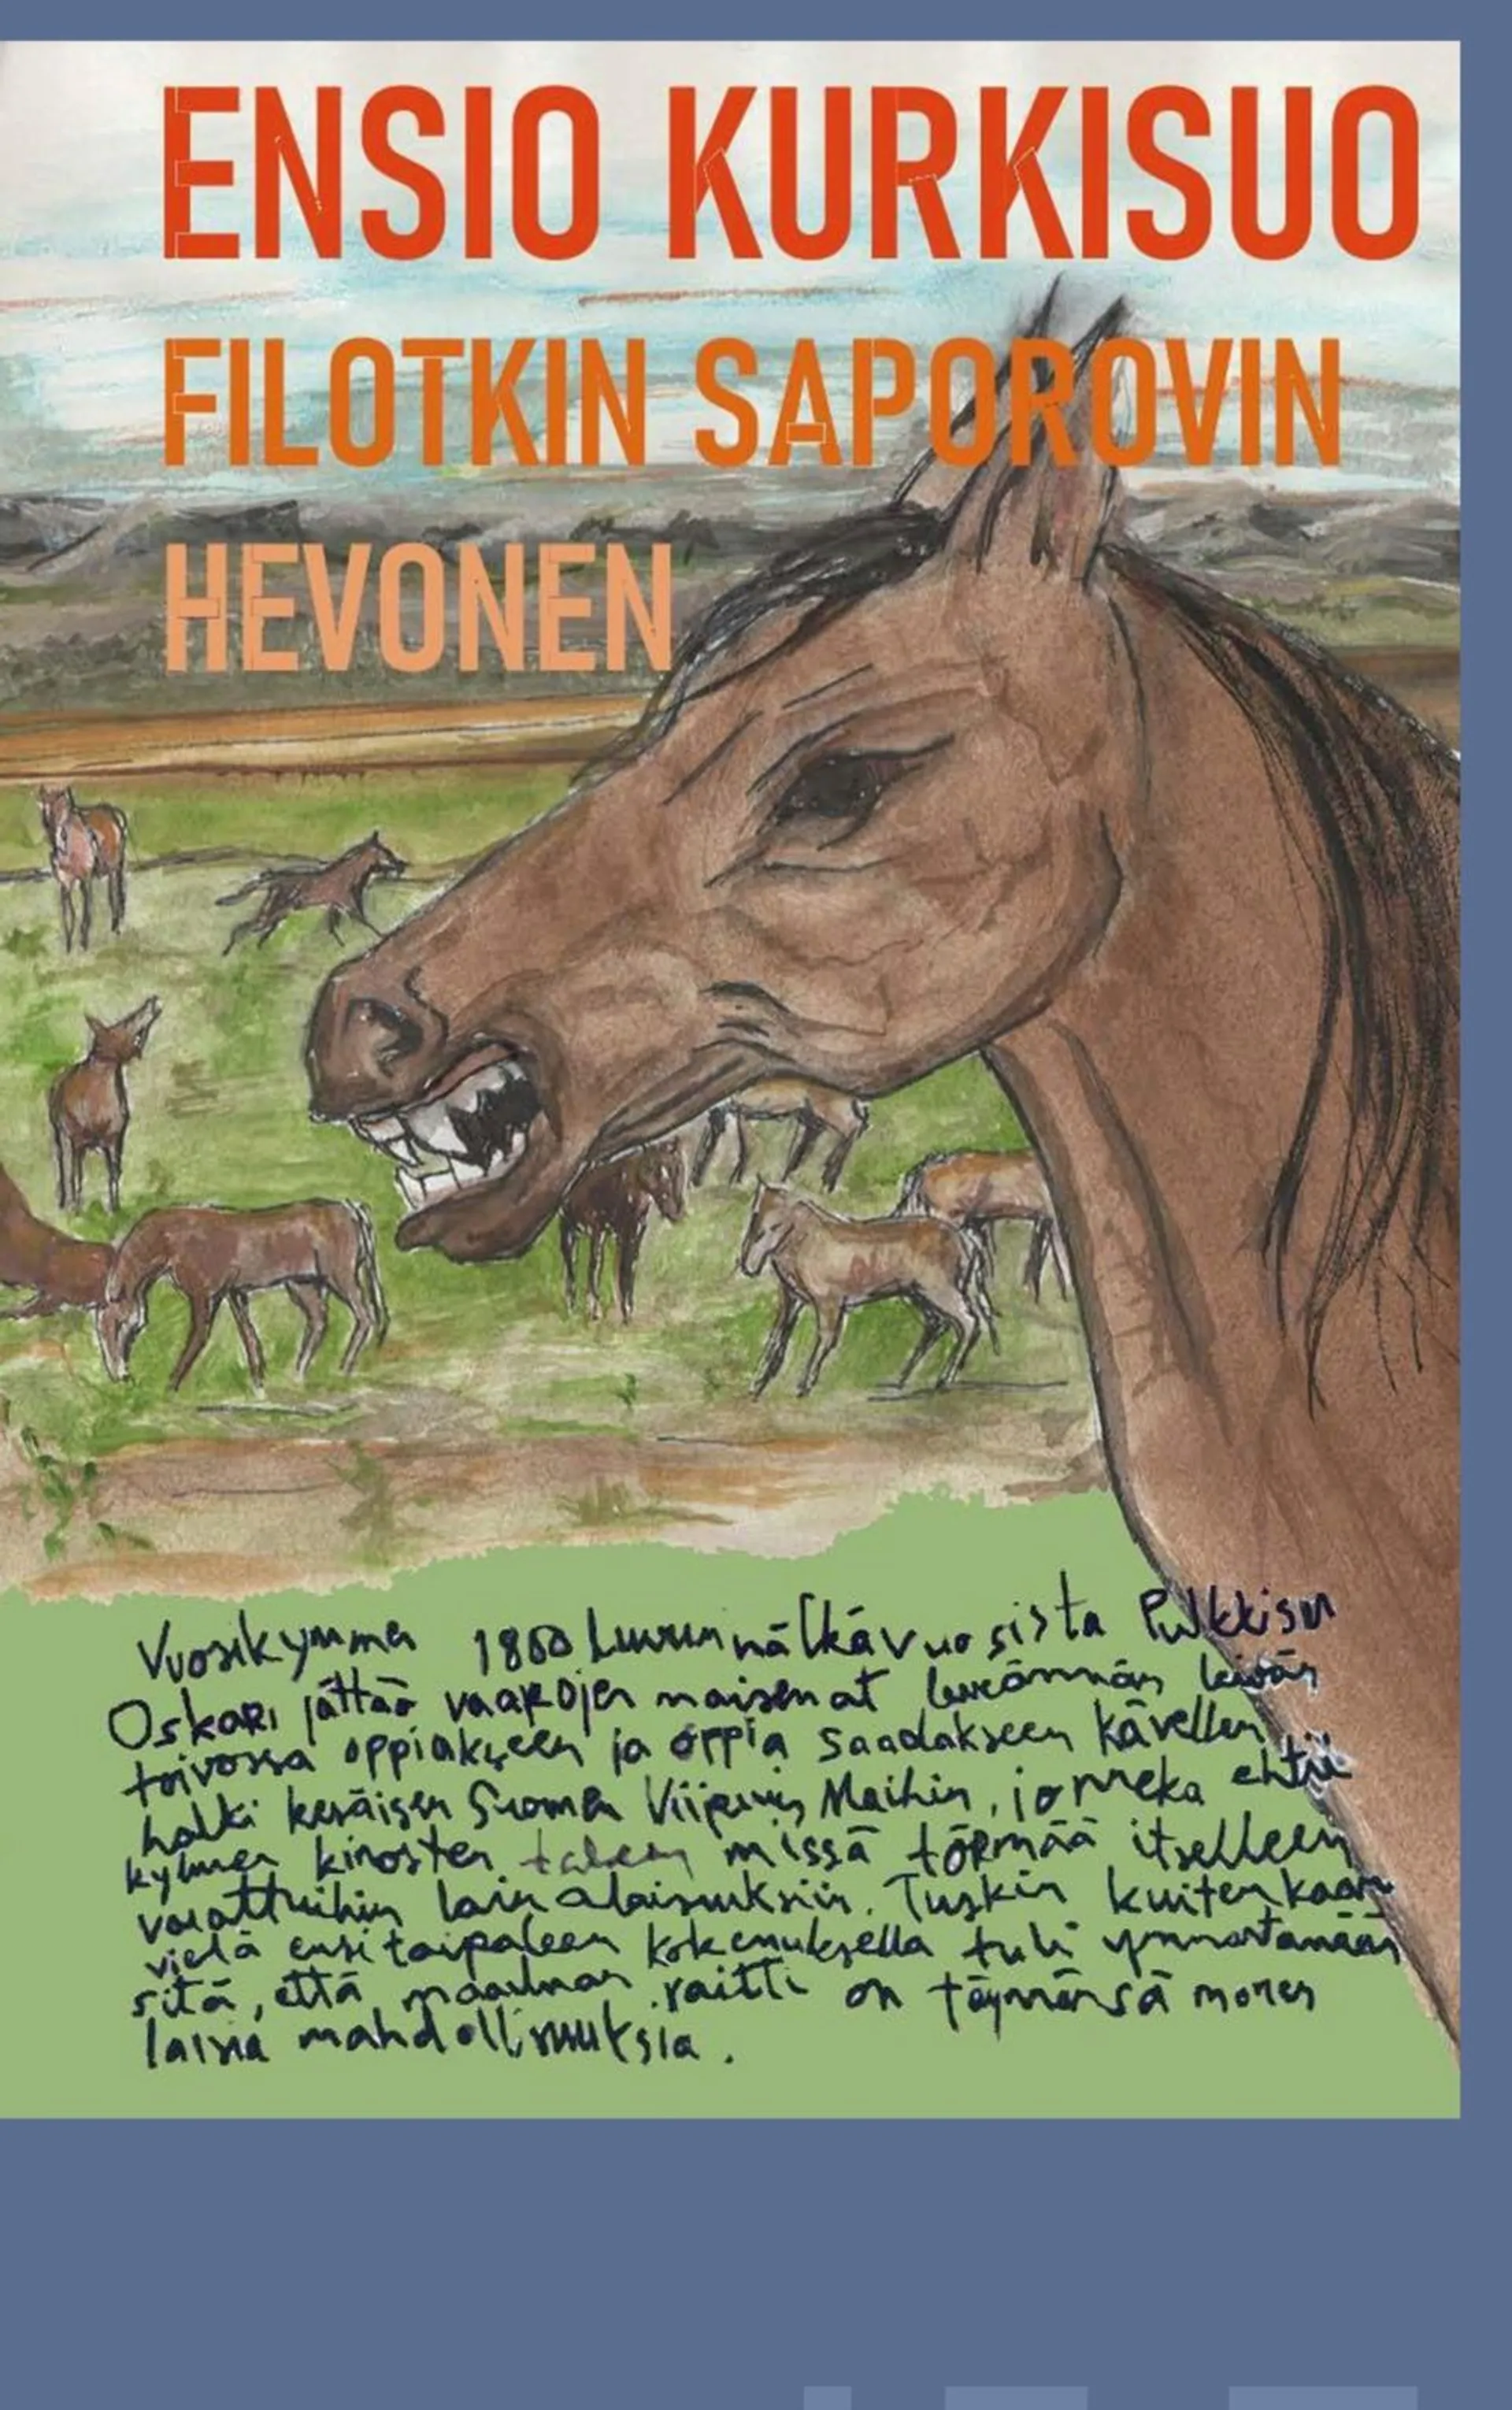 ENSIO KURKISUO
FILOTKIN SAPOROVIN
HEVONEN
Vuosikymmen 1860 luvun nälkävuosista Pulkkisen
Oskari jättää vaarojen maisemat leveämmän leivän
toivossa oppiakseen ja oppia saadakseen kävellen
halki kesäisen Suomen Viipurin Maihin, jonneka ehtii
kylmen kinosten taleen missä törmää itselleen
varattuihin lainalaisuuksiin. Tuskin kuitenkaan
vielä ensitaipaleen kokemuksella tuli ymmärtämään
sitä, että maailman raitti on täynnänsä monen
laisia mahdollisuuksia.